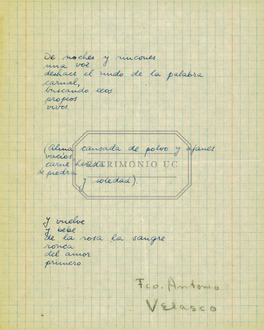 De noches y rincones
una voz
deshace el nudo de la palabra
carnal,
buscando ecos
propios
vivos.
(Alma cansada de polvo y afanes
vacíos
carne
de piedra
y soledad).
PATRIMONIO UC
Y vuelve
y bebe
de la rosa la sangre
ronca
del amor
primero.
Fco. Antonio
Velasco